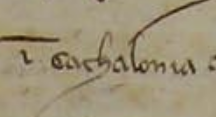 ī cathalonia